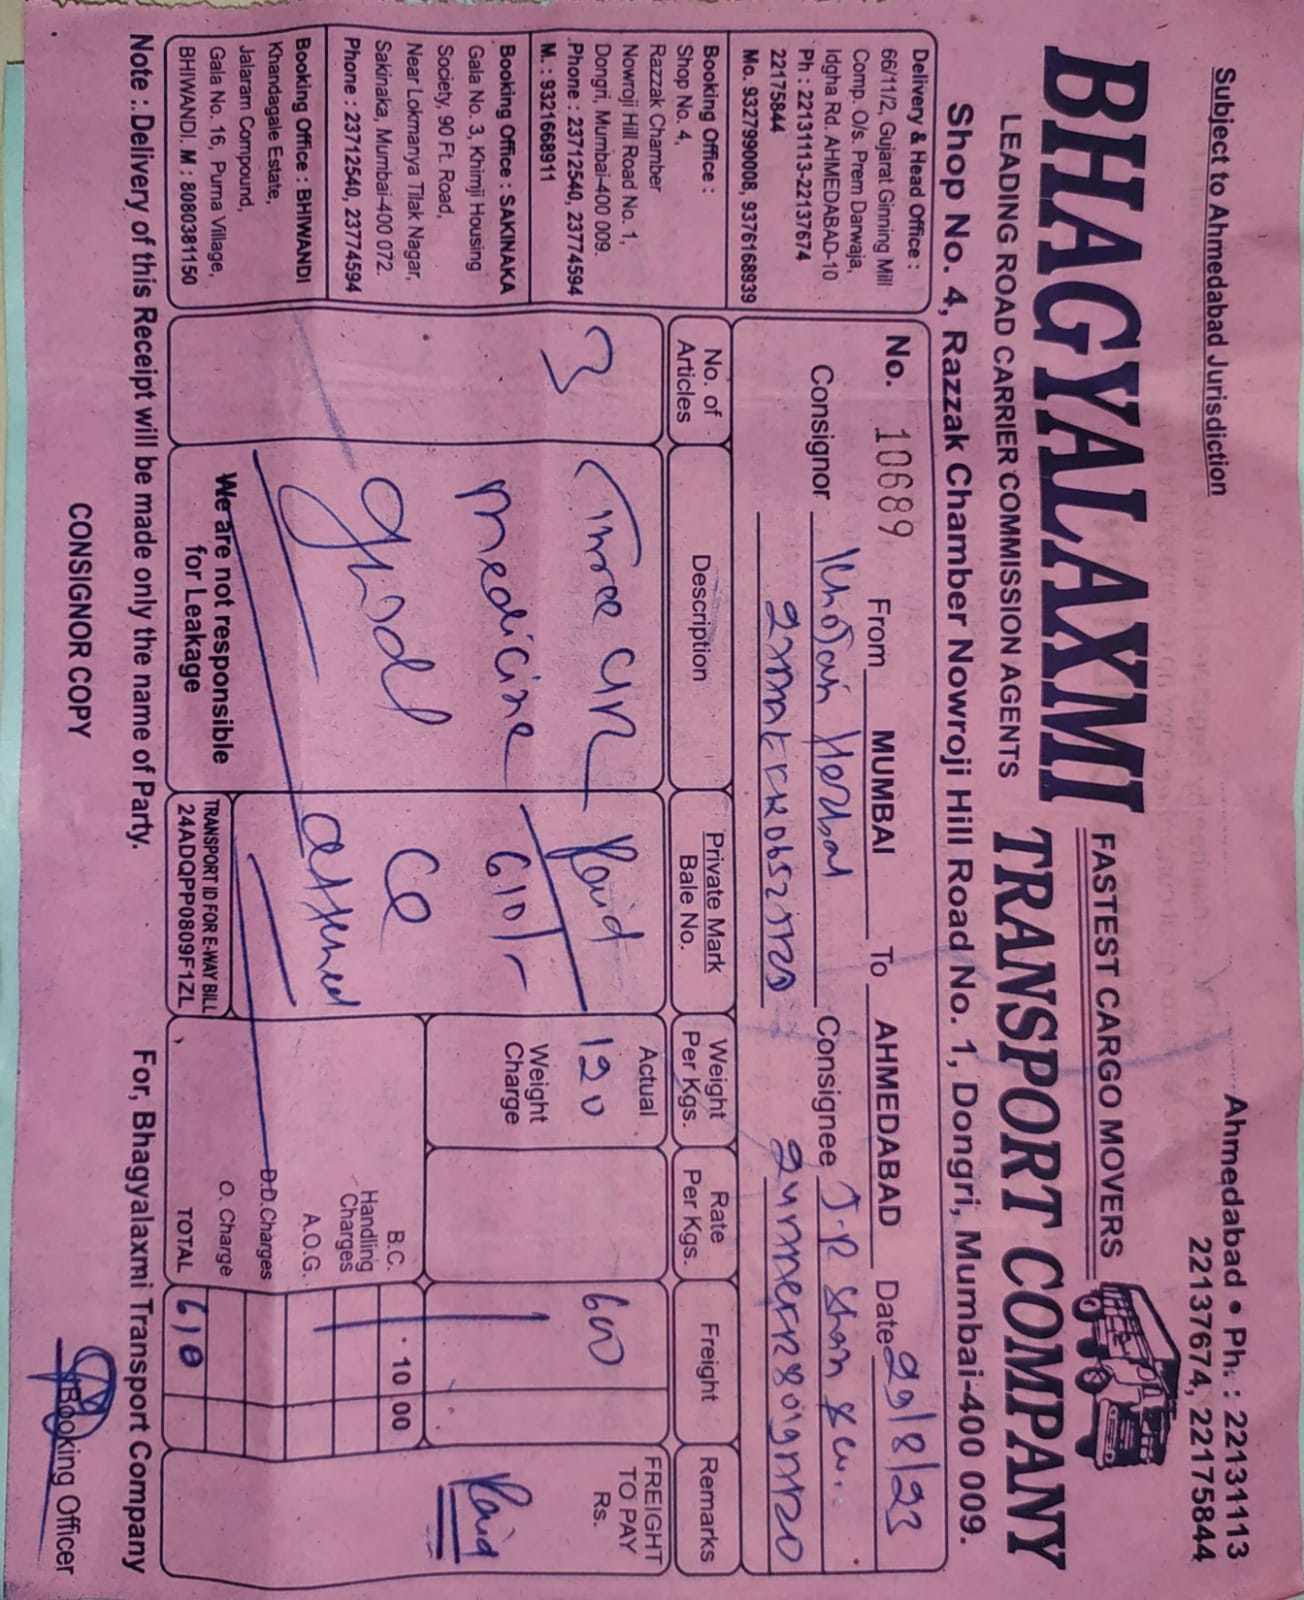 Subject to Ahmedabad Jurisdiction
Ahmedabad • Ph. : 22131113
22137674, 22175844
BHAGYALAXMI
FASTEST CARGO MOVERS
TRANSPORT COMPANY
LEADING ROAD CARRIER COMMISSION AGENTS
Shop No. 4, Razzak Chamber Nowroji Hill Road No. 1, Dongri, Mumbai-400 009.
Delivery & Head Office :
66/11/2, Gujarat Ginning Mill
Comp. O/s. Prem Darwaja,
Idgha Rd. AHMEDABAD-10
Ph : 22131113-22137674
22175844
Mo. 9327990008, 9376168939
Booking Office :
Shop No. 4,
Razzak Chamber
Nowroji Hill Road No. 1,
Dongri, Mumbai-400 009.
Phone : 23712540, 23774594
M. : 9321668911
Booking Office : SAKINAKA
Gala No. 3, Khimji Housing
Society, 90 Ft. Road,
Near Lokmanya Tilak Nagar,
Sakinaka, Mumbai-400 072.
Phone : 23712540, 23774594
Booking Office : BHIWANDI
Khandagale Estate,
Jalaram Compound,
Gala No. 16, Purna Village,
BHIWANDI. M : 8080381150
No. 10689 From MUMBAI To AHMEDABAD Date 29/8/23
Consignor Herbal Consignee J.R Shah & Co.
No. of Articles
Description
Private Mark
Bale No.
Weight
Per Kgs.
Rate
Per Kgs.
Freight
Remarks
3
Three
medicine
Paid
610/-
Actual
120
Weight
Charge
600
FREIGHT
TO PAY
Rs.
Paid
B.C. 10 00
Handling
Charges
A.O.G.
D.D.Charges
O. Charge
TOTAL 610
We are not responsible
for Leakage
TRANSPORT ID FOR E-WAY BILL
24ADQPP0809F1ZL
Note : Delivery of this Receipt will be made only the name of Party.
For, Bhagyalaxmi Transport Company
CONSIGNOR COPY
Booking Officer